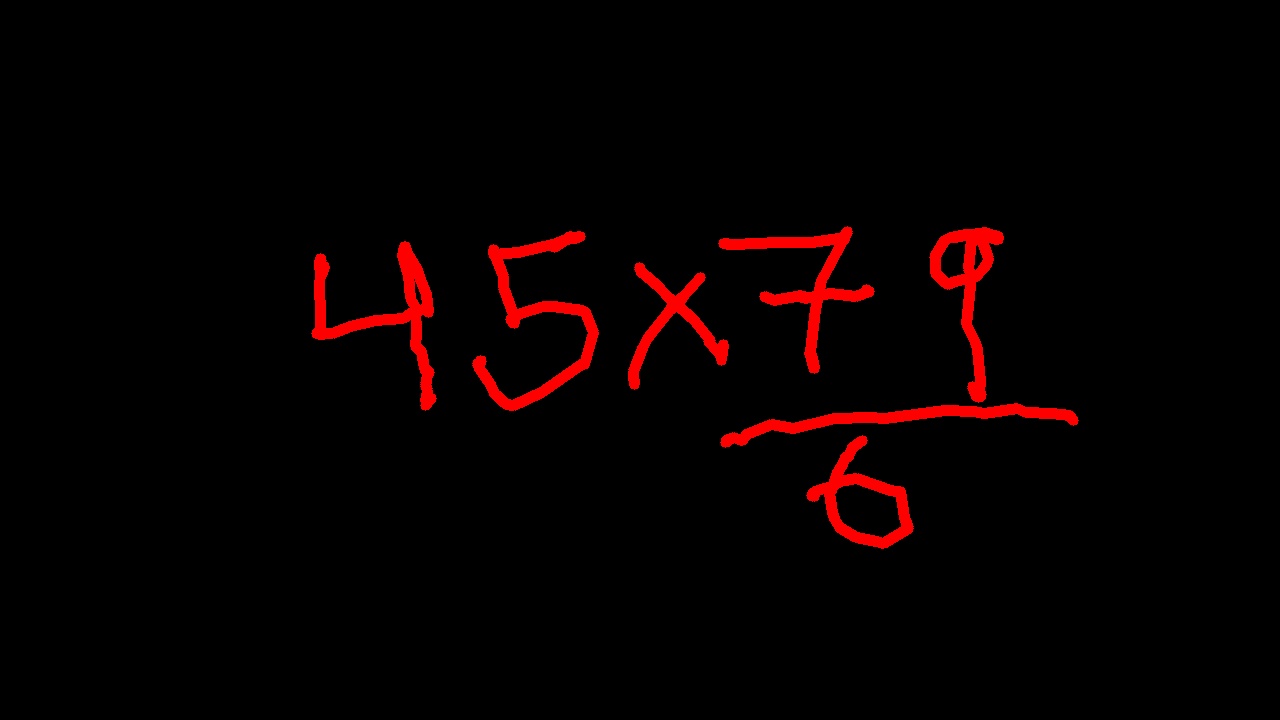 45×79
6